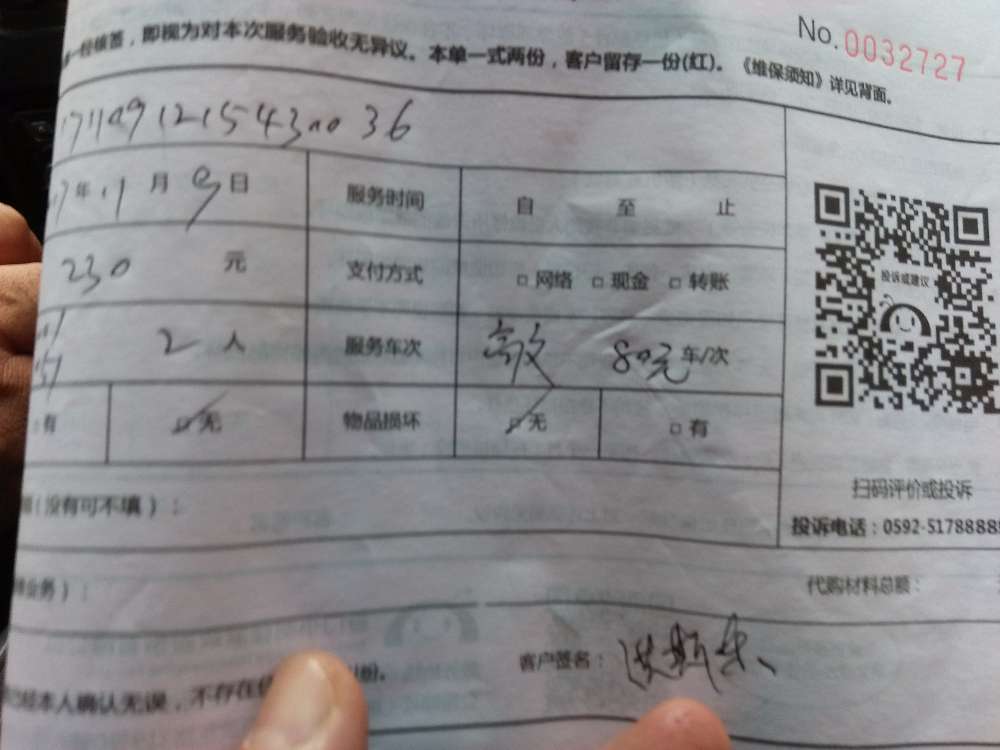 No.0032727
经核签，即视为对本次服务验收无异议。本单一式两份，客户留存一份(红)。《维保须知》详见背面。
年 11 月 9 日 服务时间 自 至 止
230 元 支付方式 □ 网络 □ 现金 □ 转账
投诉或建议
2 人 服务车次 80元 车/次
□ 有 □ 无 物品损坏 □ 无 □ 有
扫码评价或投诉
(没有可不填)：
投诉电话：0592-5178888
业务)：
代购材料总额：
客户签名：
经本人确认无误，不存在